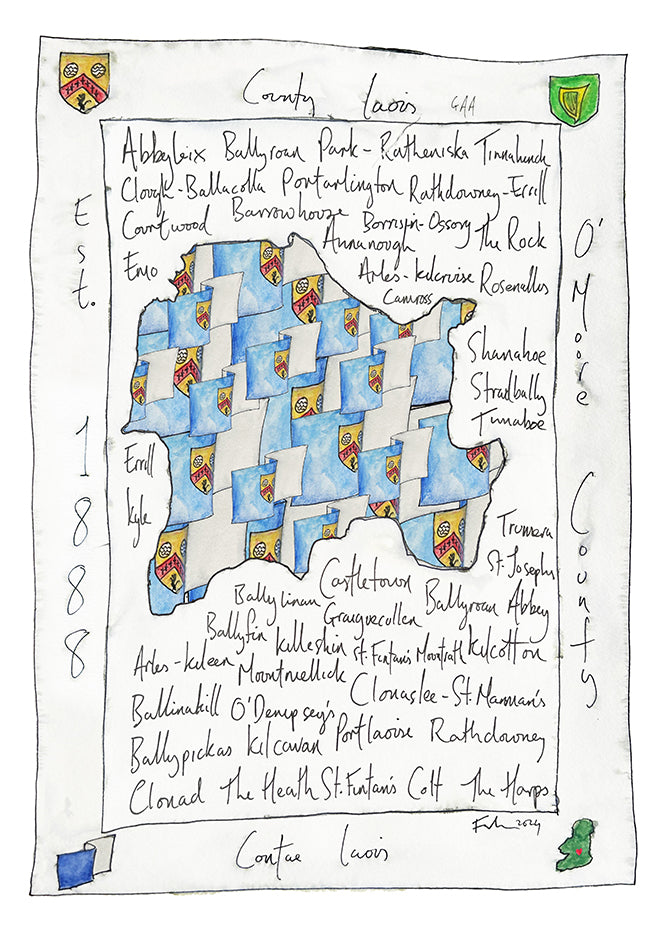 County Laois GAA
Est. 1888
O'Moore County
Abbyleix Ballyroan Park-Ratheniska Tinnahinch
Clough-Ballacolla Portarlington Rathdowney-Errill
Courtwood Barrowhouse Borris-in-Ossory The Rock
Annanough
Emo Arles-Kilcruise Rosenallis
Camross
Shanahoe
Stradbally
Timahoe
Errill
Kyle
Trumera
St. Josephs
Ballylinan Castletown Ballyroan Abbey
Graiguecullen
Ballyfin Killeshin St. Fintan's Mountrath Kilcotton
Arles-Kileen Mountmellick
Ballinakill O'Dempsey's Clonaslee-St. Manman's
Ballypickas Kilcavan Portlaoise Rathdowney
Clonad The Heath St. Fintan's Colt The Harps
2024
Contae Laois